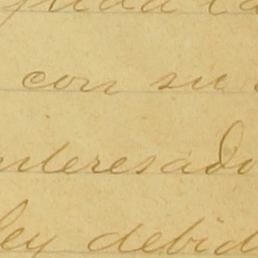 con su
nteresado
ley debid